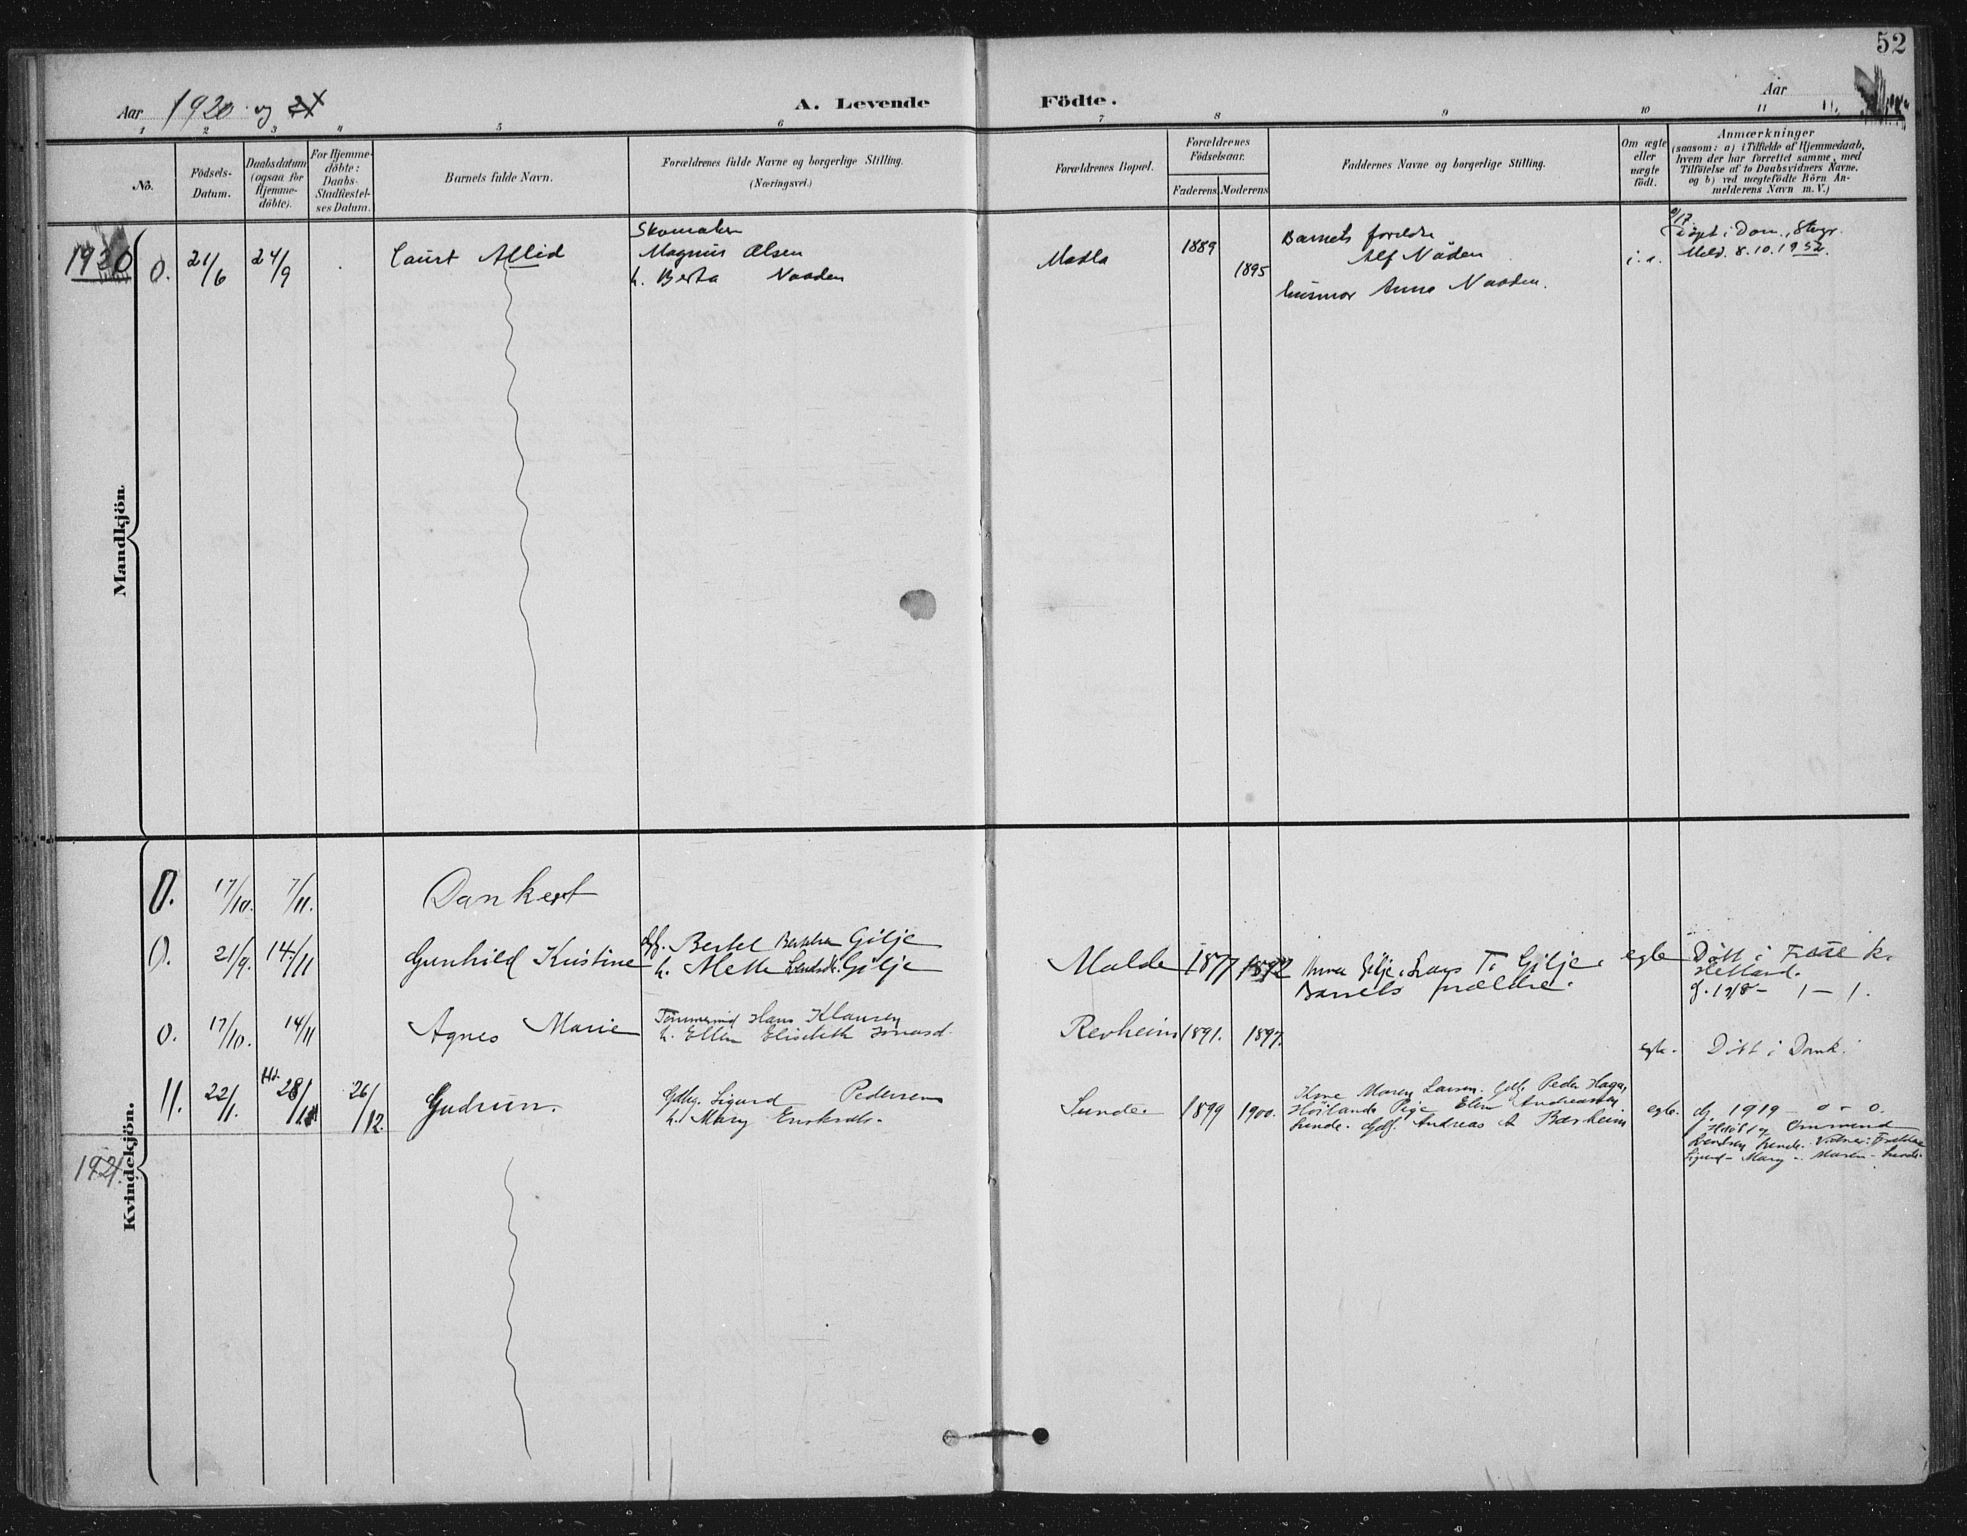 52
Aar 1920 og 21
A. Levende Födte.
Aar
1 2 3 4 5 6 7 8 9 10 11
No.
Födsels-
Datum.
Daabsdatum
(ogsaa for
Hjemme-
döbte).
For Hjemme-
döbte:
Daabs-
Stadfæstel-
ses Datum.
Barnets fulde Navn.
Forældrenes fulde Navne og borgerlige Stilling.
(Næringsvei.)
Forældrenes Bopæl.
Forældrenes
Födselsaar.
Faderens. Moderens
Faddernes Navne og borgerlige Stilling.
Om ægte
eller
uægte
födt.
Anmærkninger
(saasom: a) i Tilfælde af Hjemmedaab,
hvem der har forrettet samme, med
Tilföielse af to Daabsvidners Navne.
og b) ved uægtefödte Börn An-
melderens Navn m. V.)
Mandkjön
1920
0. 21/6 24/9
Laurt Allid
Skomaker
Magnus Olsen
h. Berta Naaden
Madla
1889 1895
Barnets foreldre
Alf Nåden
husmor Anna Naaden.
døpt i Dom., Stvgr.
Meld. 8.10.1952.
Kvindekjön.
0. 17/10. 7/11. Dankert
0. 21/9. 14/11 Gunhild Kristine
Bertel Bertelsen Gilje
h. Mette Gilje
Malde 1877 1872
Gilje, Lars T. Gilje.
Barnets forældre.
egte
Döbt i Frue k.
Hetland.
f. 1918 – 1 – 1.
0. 17/10. 14/11 Agnes Marie
Tömmermd Hans Klausen
h. Ellen Elisabeth
Revheim 1891. 1897.
egte. Döbt i Domk.
11. 22/1. Hd. 28/1 26/12. Gudrun.
Gdbr. Sigurd Pedersen
h. Mary
Sunde. 1899 1900.
Kone Maren Larsen. Gdbr. Peder Haga,
Höiland, Pige Elen Andreassen
Sunde. Gdbr. Andreas A Bærheim
egte. dg. 1919 – 0 – 0.
Sigurd – Mary – Maren – Sunde.
1921.